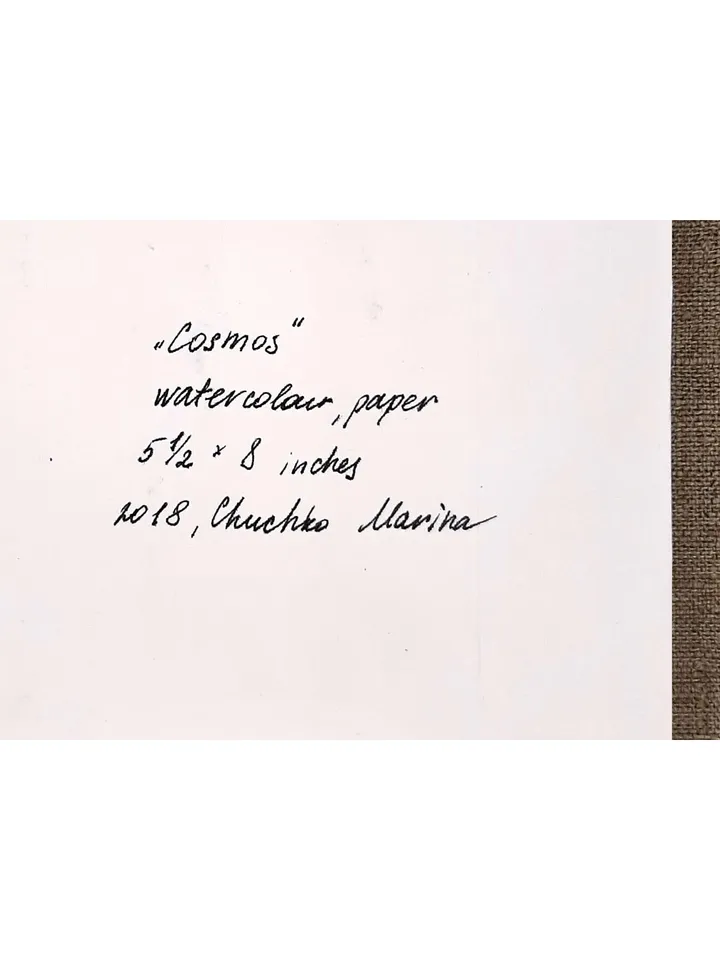 „Cosmos“
watercolour, paper
5 1/2 × 8 inches
2018, Chuchko Marina